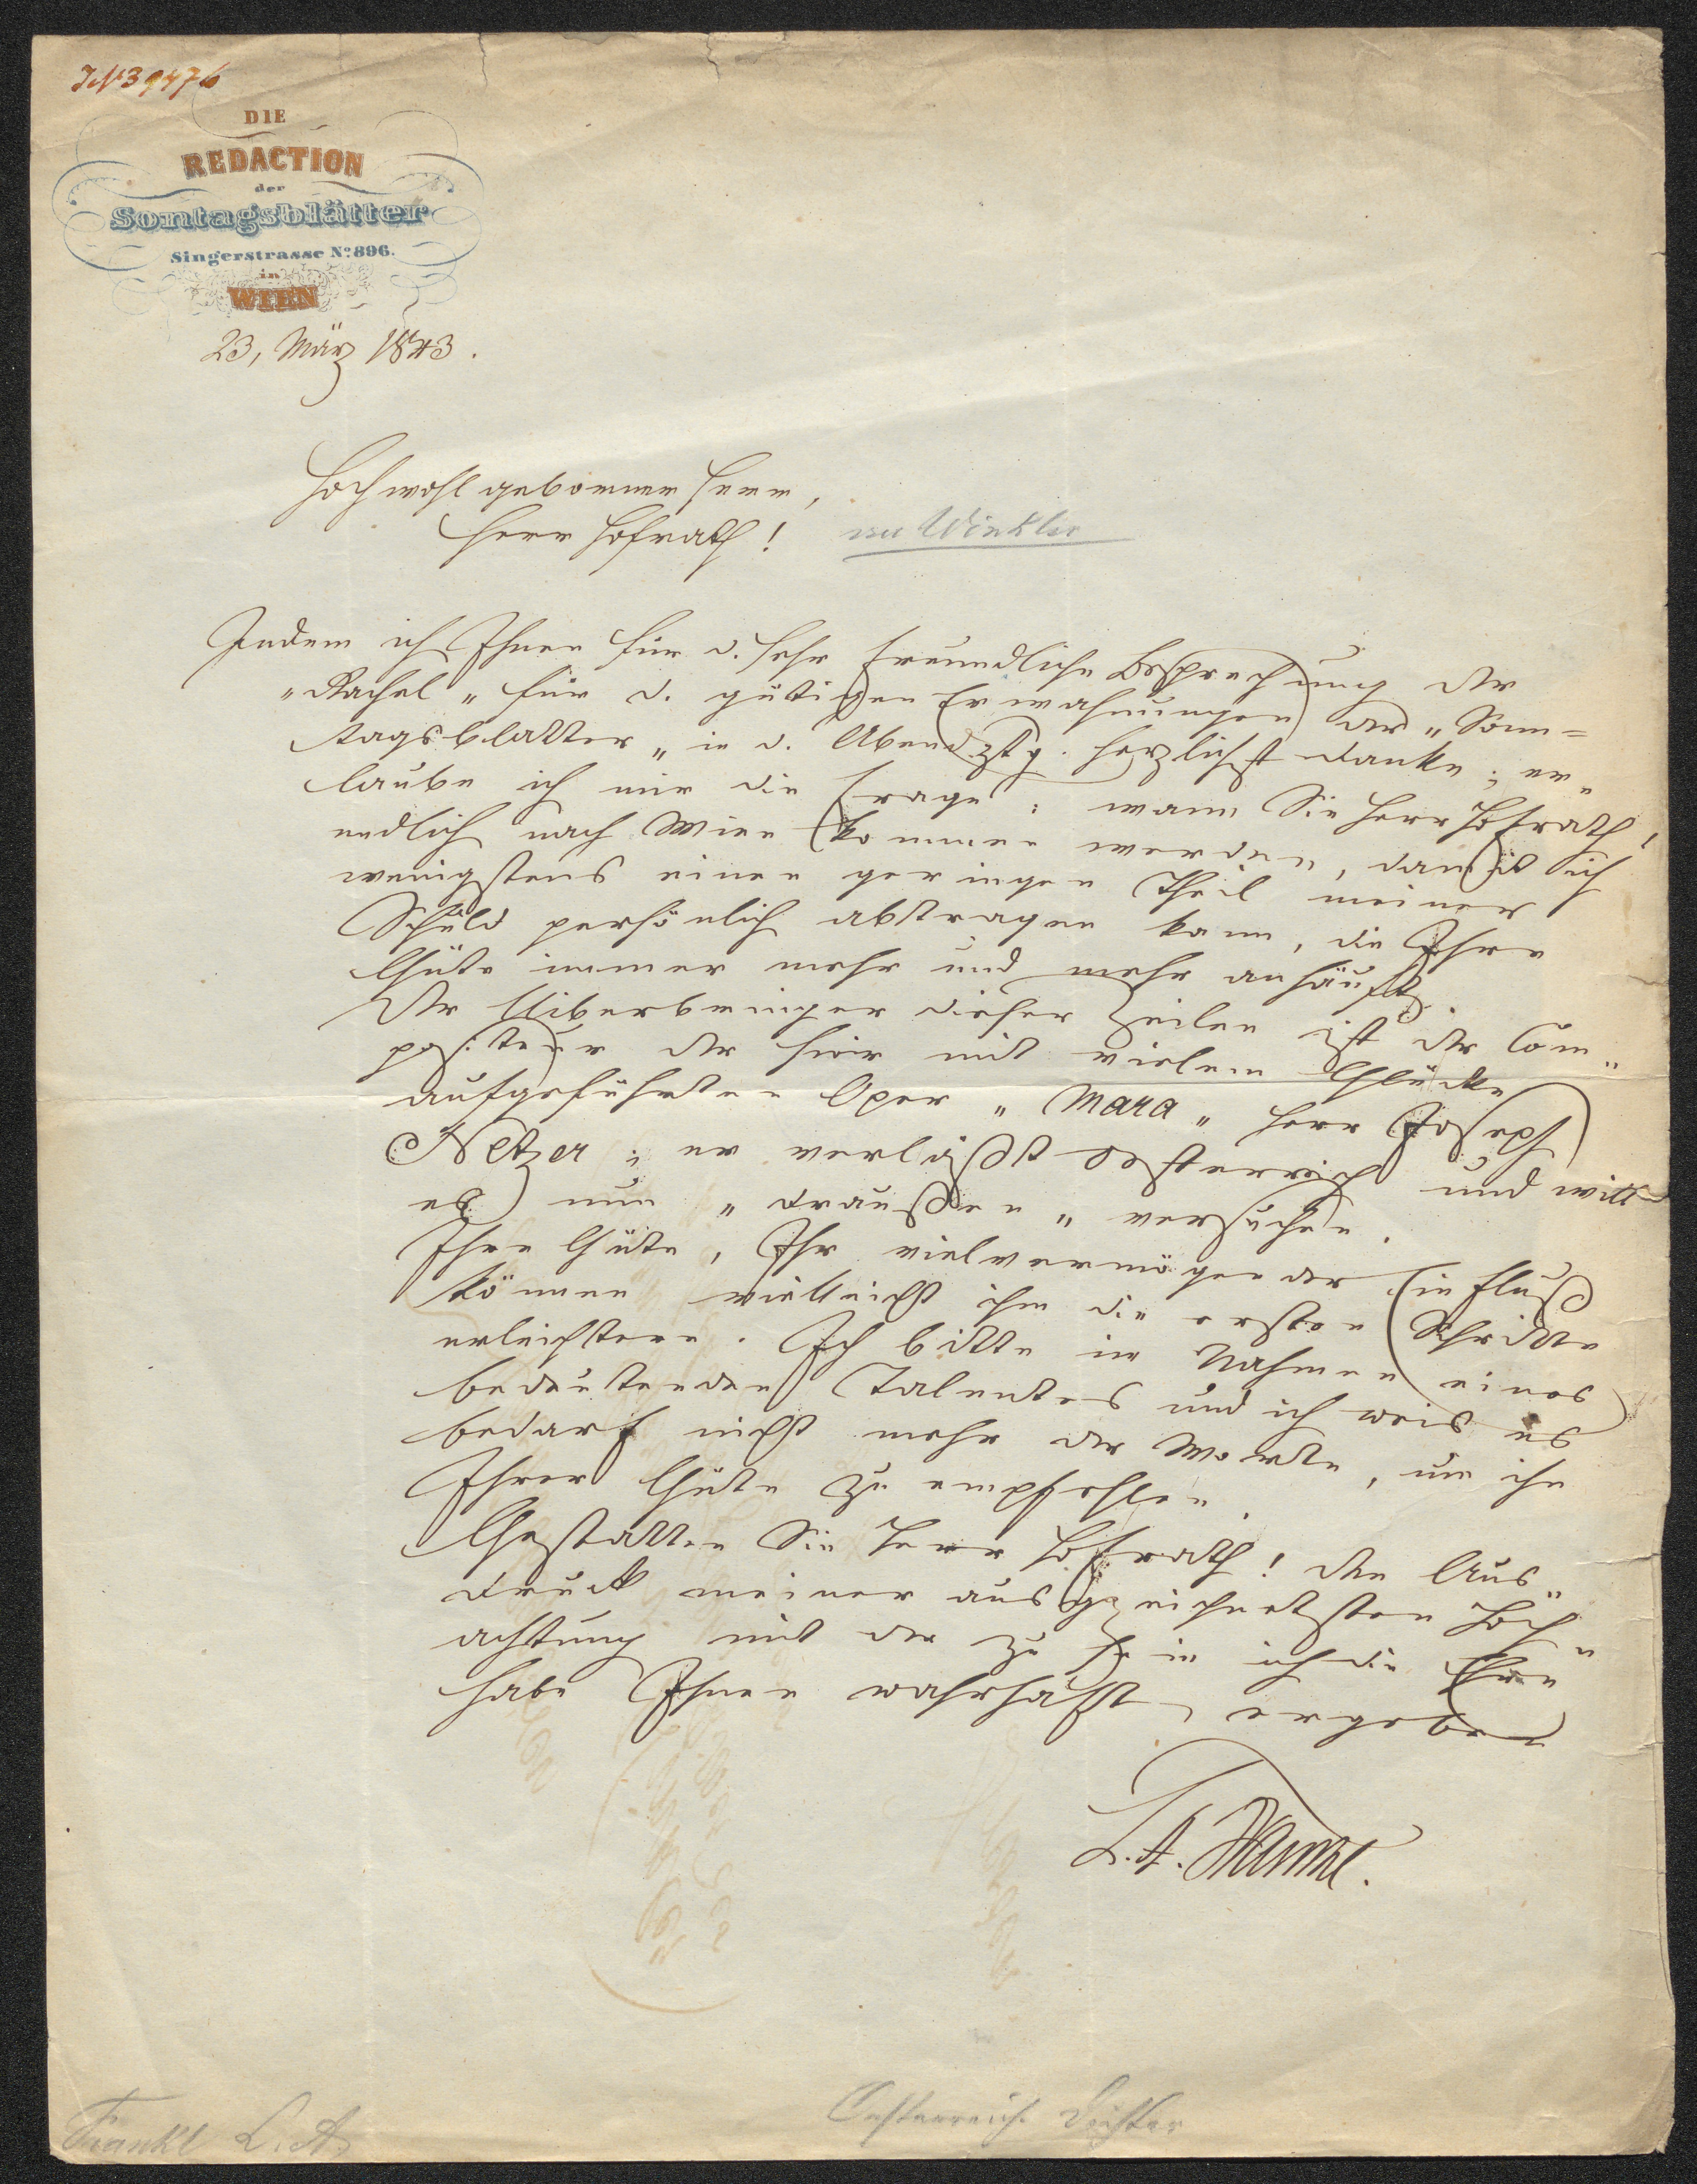 IN 39476
DIE
REDACTION
der
Sontagsblätter
Singerstrasse No. 896.
in
WIEN
23, März 1843.
Hochwohlgeborner Herr,
Herr Hofrath!
an Winkler
Indem ich Ihnen für d. sehr freundliche Besprechung der
"Rachel" für d. gütigen Erwähnungen der "Sonn=
tagsblätter" in d. Abendztg. herzlichst danke; er„
laube ich mir die Frage: wann Sie Herr Hofrath,
endlich nach Wien kommen werden, damit ich
wenigstens einen geringen Theil meiner
Schuld persönlich abtragen kann, die Ihre
Güte immer mehr und mehr anhäuft.
Der Uiberbringer dieser Zeilen ist der Com„
positeur der hier mit vielem Glücke
aufgeführten Oper "Mara" Herr Joseph
Netzer; er verläßt Oesterreich und will
es nun "draußen" versuchen.
Ihre Güte, Ihr vielvermögender Einfluß
können vielleicht ihm die ersten Schritte
erleichtern. Ich bitte im Nahmen eines
bedeutenden Talentes und ich weis es
bedarf nicht mehr der Worte, um ihn
Ihrer Güte zu empfehlen.
Gestatten Sie Herr Hofrath! den Aus„
druck meiner ausgezeichnetsten Hoch„
achtung mit der zu sein ich die Ehre
habe Ihnen wahrhaft ergeben
L. A. Frankl.
Frankl L. A.
Oesterreich. Dichter